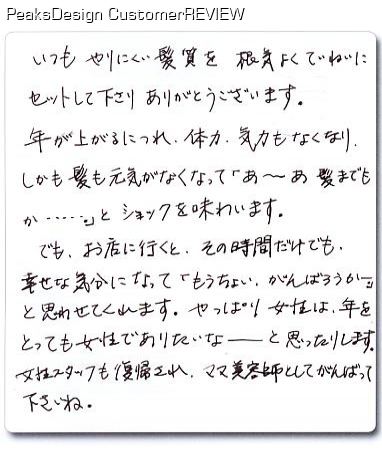 PeaksDesign CustomerREVIEW
いつも やりにくい髪質を 根気よくていねいに
セットして下さり ありがとうございます。
年が上がるにつれ、体力、気力もなくなり、
しかも髪も元気がなくなって「あ〜あ 髪までも
か……。」と ショックを味わいます。
でも、お店に行くと、その時間だけでも、
幸せな気分になって「もうちょい、がんばろうかー。」
と思わせてくれます。やっぱり女性は、年を
とっても女性でありたいな――と思ったりします。
女性スタッフも復帰され、ママ美容師としてがんばって
下さいね。